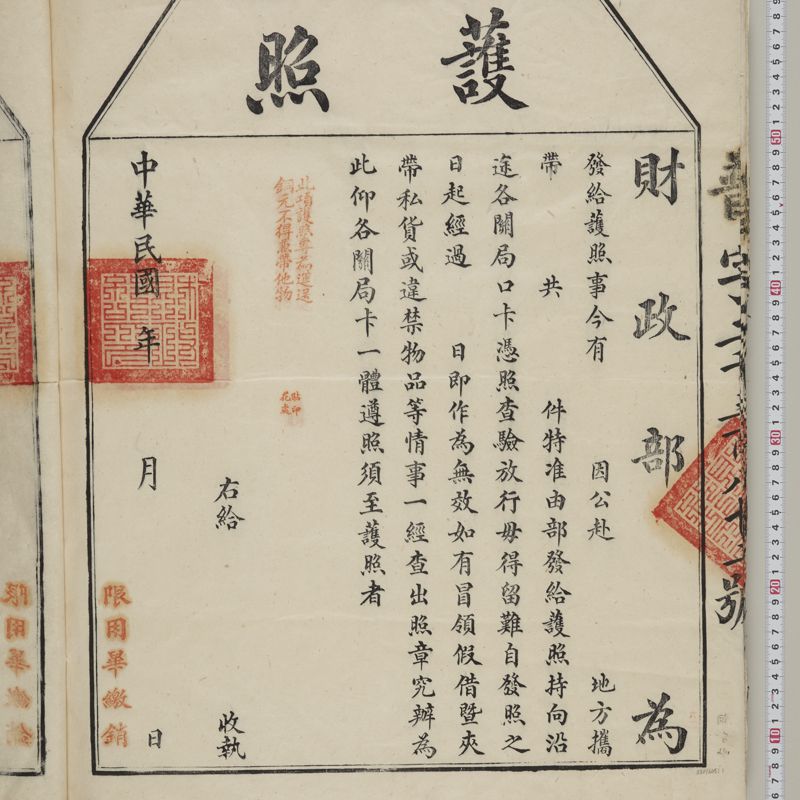 護照
財政部為
發給護照事今有 因公赴 地方攜
帶 共 件特准由部發給護照持向沿
途各關局口卡憑照查驗放行毋得留難自發照之
日起經過 日即作為無效如有冒領假借暨夾
帶私貨或違禁物品等情事一經查出照章究辦為
此仰各關局卡一體遵照須至護照者
此項護照專為運送
銅元不得裹帶他物
貼印
花處
右給 收執
中華民國 年 月 日
限用畢繳銷
限用畢繳銷